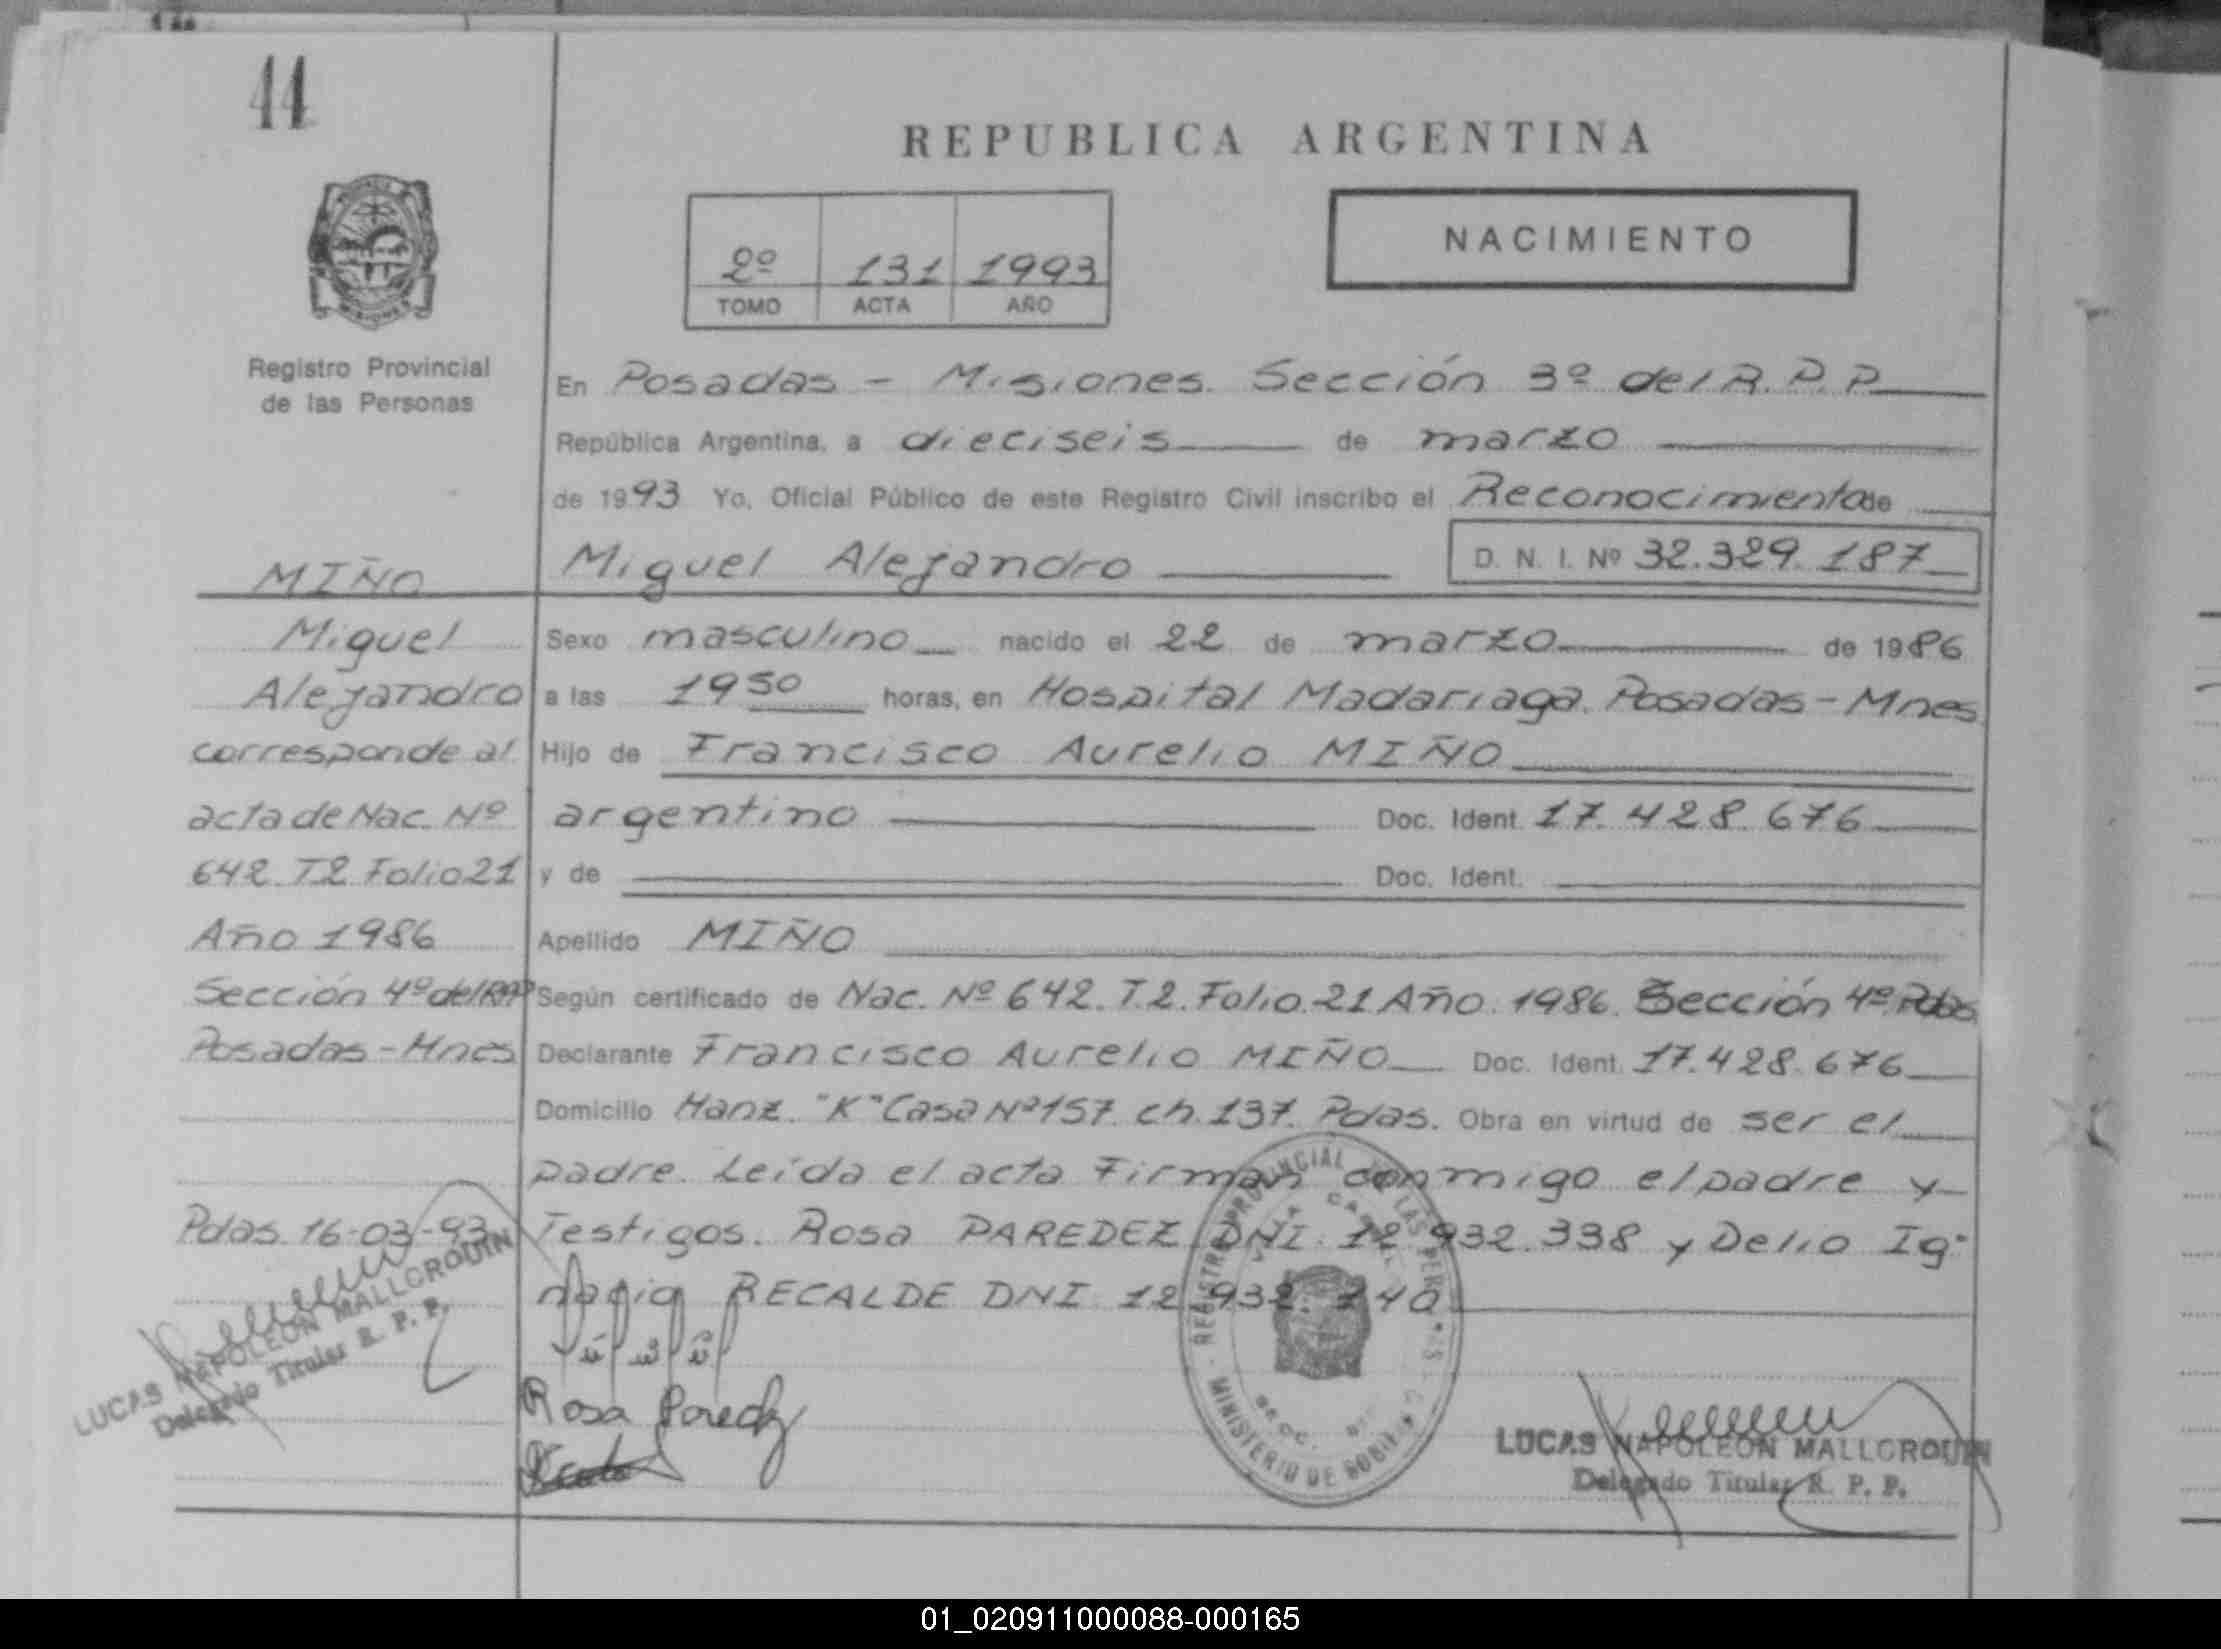 44
REPUBLICA ARGENTINA
2º 131 1993
TOMO ACTA AÑO
NACIMIENTO
MISIONES
Registro Provincial
de las Personas
En Posadas - Misiones. Sección 3º del R.P.P.
República Argentina, a dieciseis de marzo
de 1993 Yo, Oficial Público de este Registro Civil inscribo el Reconocimiento de
Miguel Alejandro D. N. I. Nº 32.329.187
Sexo masculino nacido el 22 de marzo de 1986
a las 19 50 horas, en Hospital Madariaga. Posadas - Mnes
Hijo de Francisco Aurelio MIÑO
argentino Doc. Ident. 17.428.676
y de Doc. Ident.
Apellido MIÑO
Según certificado de Nac. Nº 642. T.2. Folio.21 Año. 1986. Sección 4º Pdas
Declarante Francisco Aurelio MIÑO Doc. Ident. 17.428.676
Domicilio Manz. "K" Casa Nº 157. ch.137. Pdas. Obra en virtud de ser el
padre. Leída el acta Firman conmigo el padre y
Testigos. Rosa PAREDEZ DNI 12.932.338 y Delio Ig-
nacio RECALDE DNI 12.932.
Rosa Paredez
MIÑO
Miguel
Alejandro
corresponde al
acta de Nac. Nº
642 T2 Folio 21
Año 1986
Sección 4º del RPP
Posadas - Mnes
Pdas. 16-03-93
LUCAS NAPOLEON MALLORQUIN
Delegado Titular R. P. P.
REGISTRO PROVINCIAL DE LAS PERSONAS
MINISTERIO DE GOBIERNO
LUCAS NAPOLEON MALLORQUIN
Delegado Titular R. P. P.
01_020911000088-000165